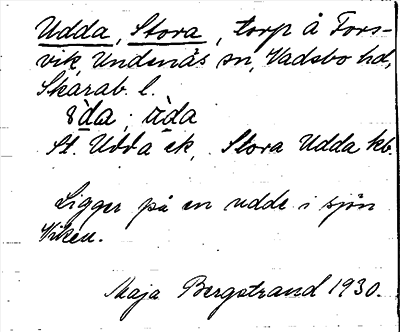 Udda, Stora, torp å Fors-
vik, Undenäs sn, Vadsbo hd,
Skarab. l.
ùda
St. Udda ek, Stora Udda kb.
Ligger på en udde i sjön
Viken.
Maja Bergstrand 1930.